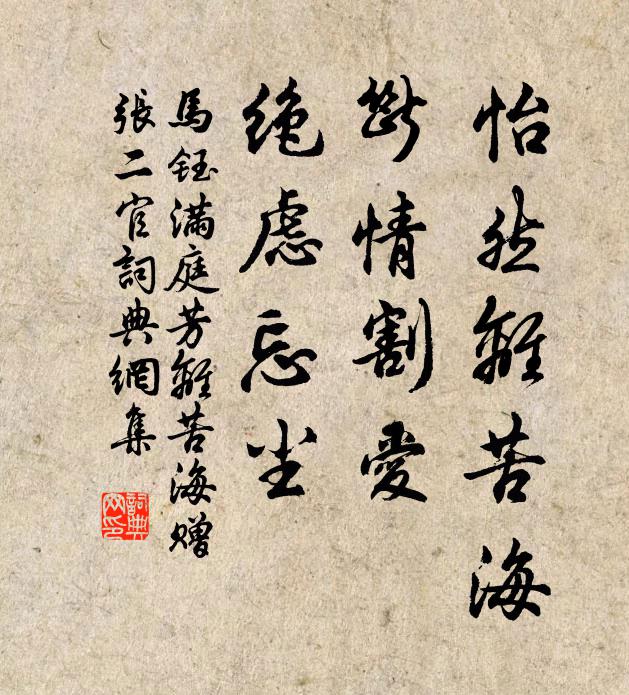 怡然離苦海
斷情割愛
絶慮忘尘
馬鈺滿庭芳離苦海贈
張二官詞典網集
詞典网印